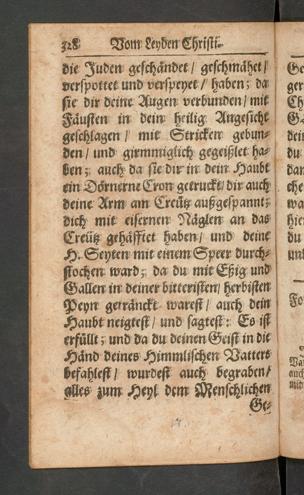 328 Vom Leyden Christi.
die Juden geschändet / geschmähet /
verspottet und verspeyet / haben; da
sie dir deine Augen verbunden / mit
Fäusten in dein heilig Angesicht
geschlagen / mit Stricken gebun-
den / und girmmiglich gegeißlet ha-
ben; auch da sie dir in dein Haubt
ein Dörnerne Cron getruckt / dir auch
deine Arm am Creütz außgespannt;
dich mit eisernen Näglen an das
Creütz gehäfftet haben / und deine
H. Seyten mit einem Speer durch-
stochen ward; da du mit Eßig und
Gallen in deiner bitteristen / herbisten
Peyn getränckt warest / auch dein
Haubt neigtest / und sagtest: Es ist
erfüllt; und da du deinen Geist in die
Händ deines Himmlischen Vatters
befahlest / wurdest auch begraben /
alles zum Heyl dem Menschlichen
Ge-